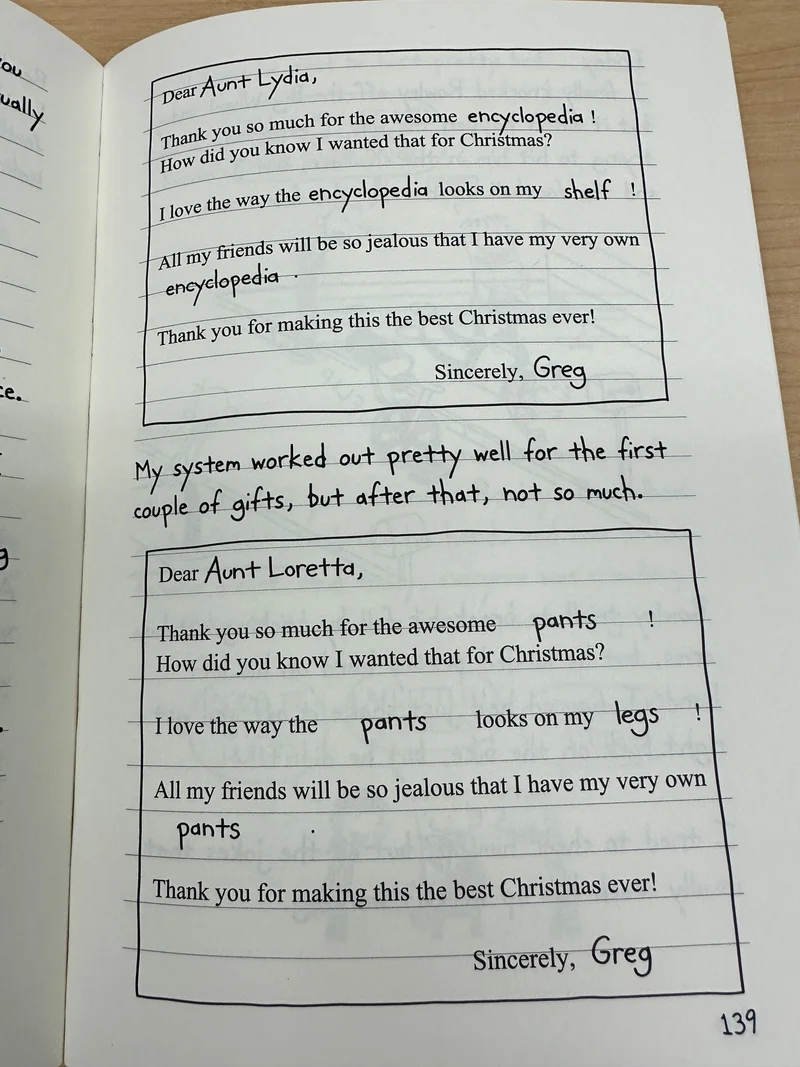 ou
ually
ce.
g
Dear Aunt Lydia,
Thank you so much for the awesome encyclopedia !
How did you know I wanted that for Christmas?
I love the way the encyclopedia looks on my shelf !
All my friends will be so jealous that I have my very own
encyclopedia .
Thank you for making this the best Christmas ever!
Sincerely, Greg
My system worked out pretty well for the first
couple of gifts, but after that, not so much.
Dear Aunt Loretta,
Thank you so much for the awesome pants !
How did you know I wanted that for Christmas?
I love the way the pants looks on my legs !
All my friends will be so jealous that I have my very own
pants .
Thank you for making this the best Christmas ever!
Sincerely, Greg
139